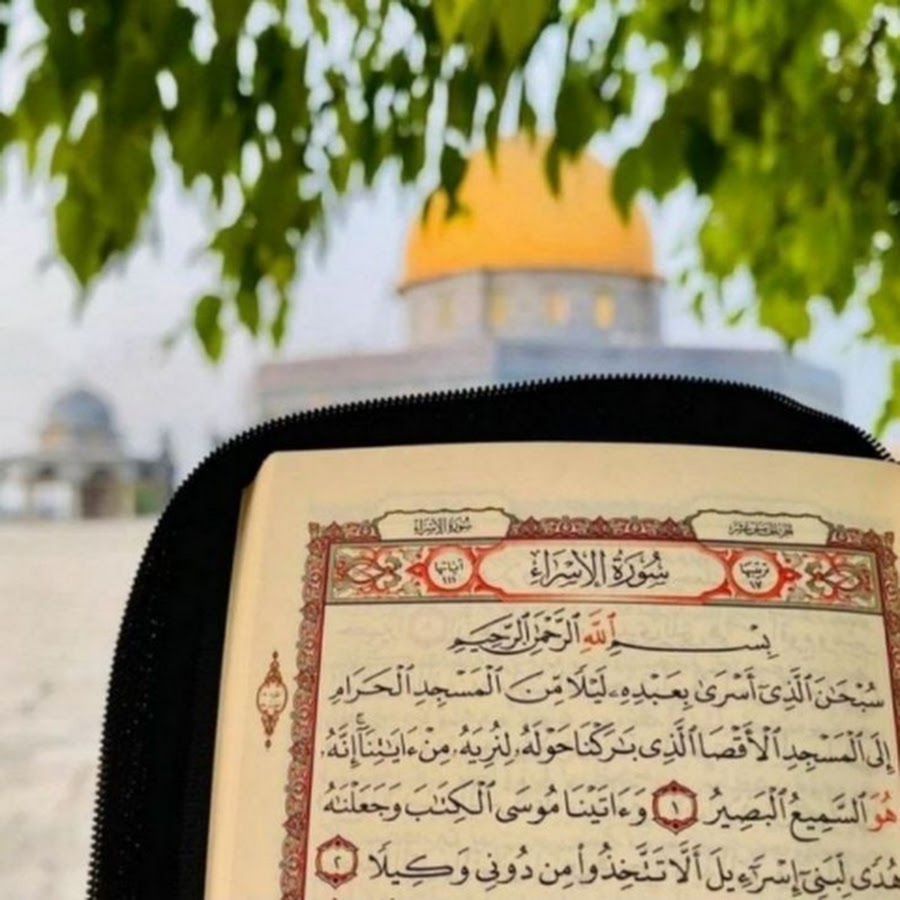 سُورَةُ الإِسْرَاءِ
سُورَةُ الإِسْرَاءِ
ترتيبها ١٧
آياتها ١١١
بِسْمِ ٱللَّهِ ٱلرَّحْمَٰنِ ٱلرَّحِيمِ
سُبْحَٰنَ ٱلَّذِىٓ أَسْرَىٰ بِعَبْدِهِۦ لَيْلًا مِّنَ ٱلْمَسْجِدِ ٱلْحَرَامِ
إِلَى ٱلْمَسْجِدِ ٱلْأَقْصَا ٱلَّذِى بَٰرَكْنَا حَوْلَهُۥ لِنُرِيَهُۥ مِنْ ءَايَٰتِنَآ ۚ إِنَّهُۥ
هُوَ ٱلسَّمِيعُ ٱلْبَصِيرُ ١ وَءَاتَيْنَا مُوسَى ٱلْكِتَٰبَ وَجَعَلْنَٰهُ
هُدًى لِّبَنِىٓ إِسْرَٰٓءِيلَ أَلَّا تَتَّخِذُوا۟ مِن دُونِى وَكِيلًا ٢